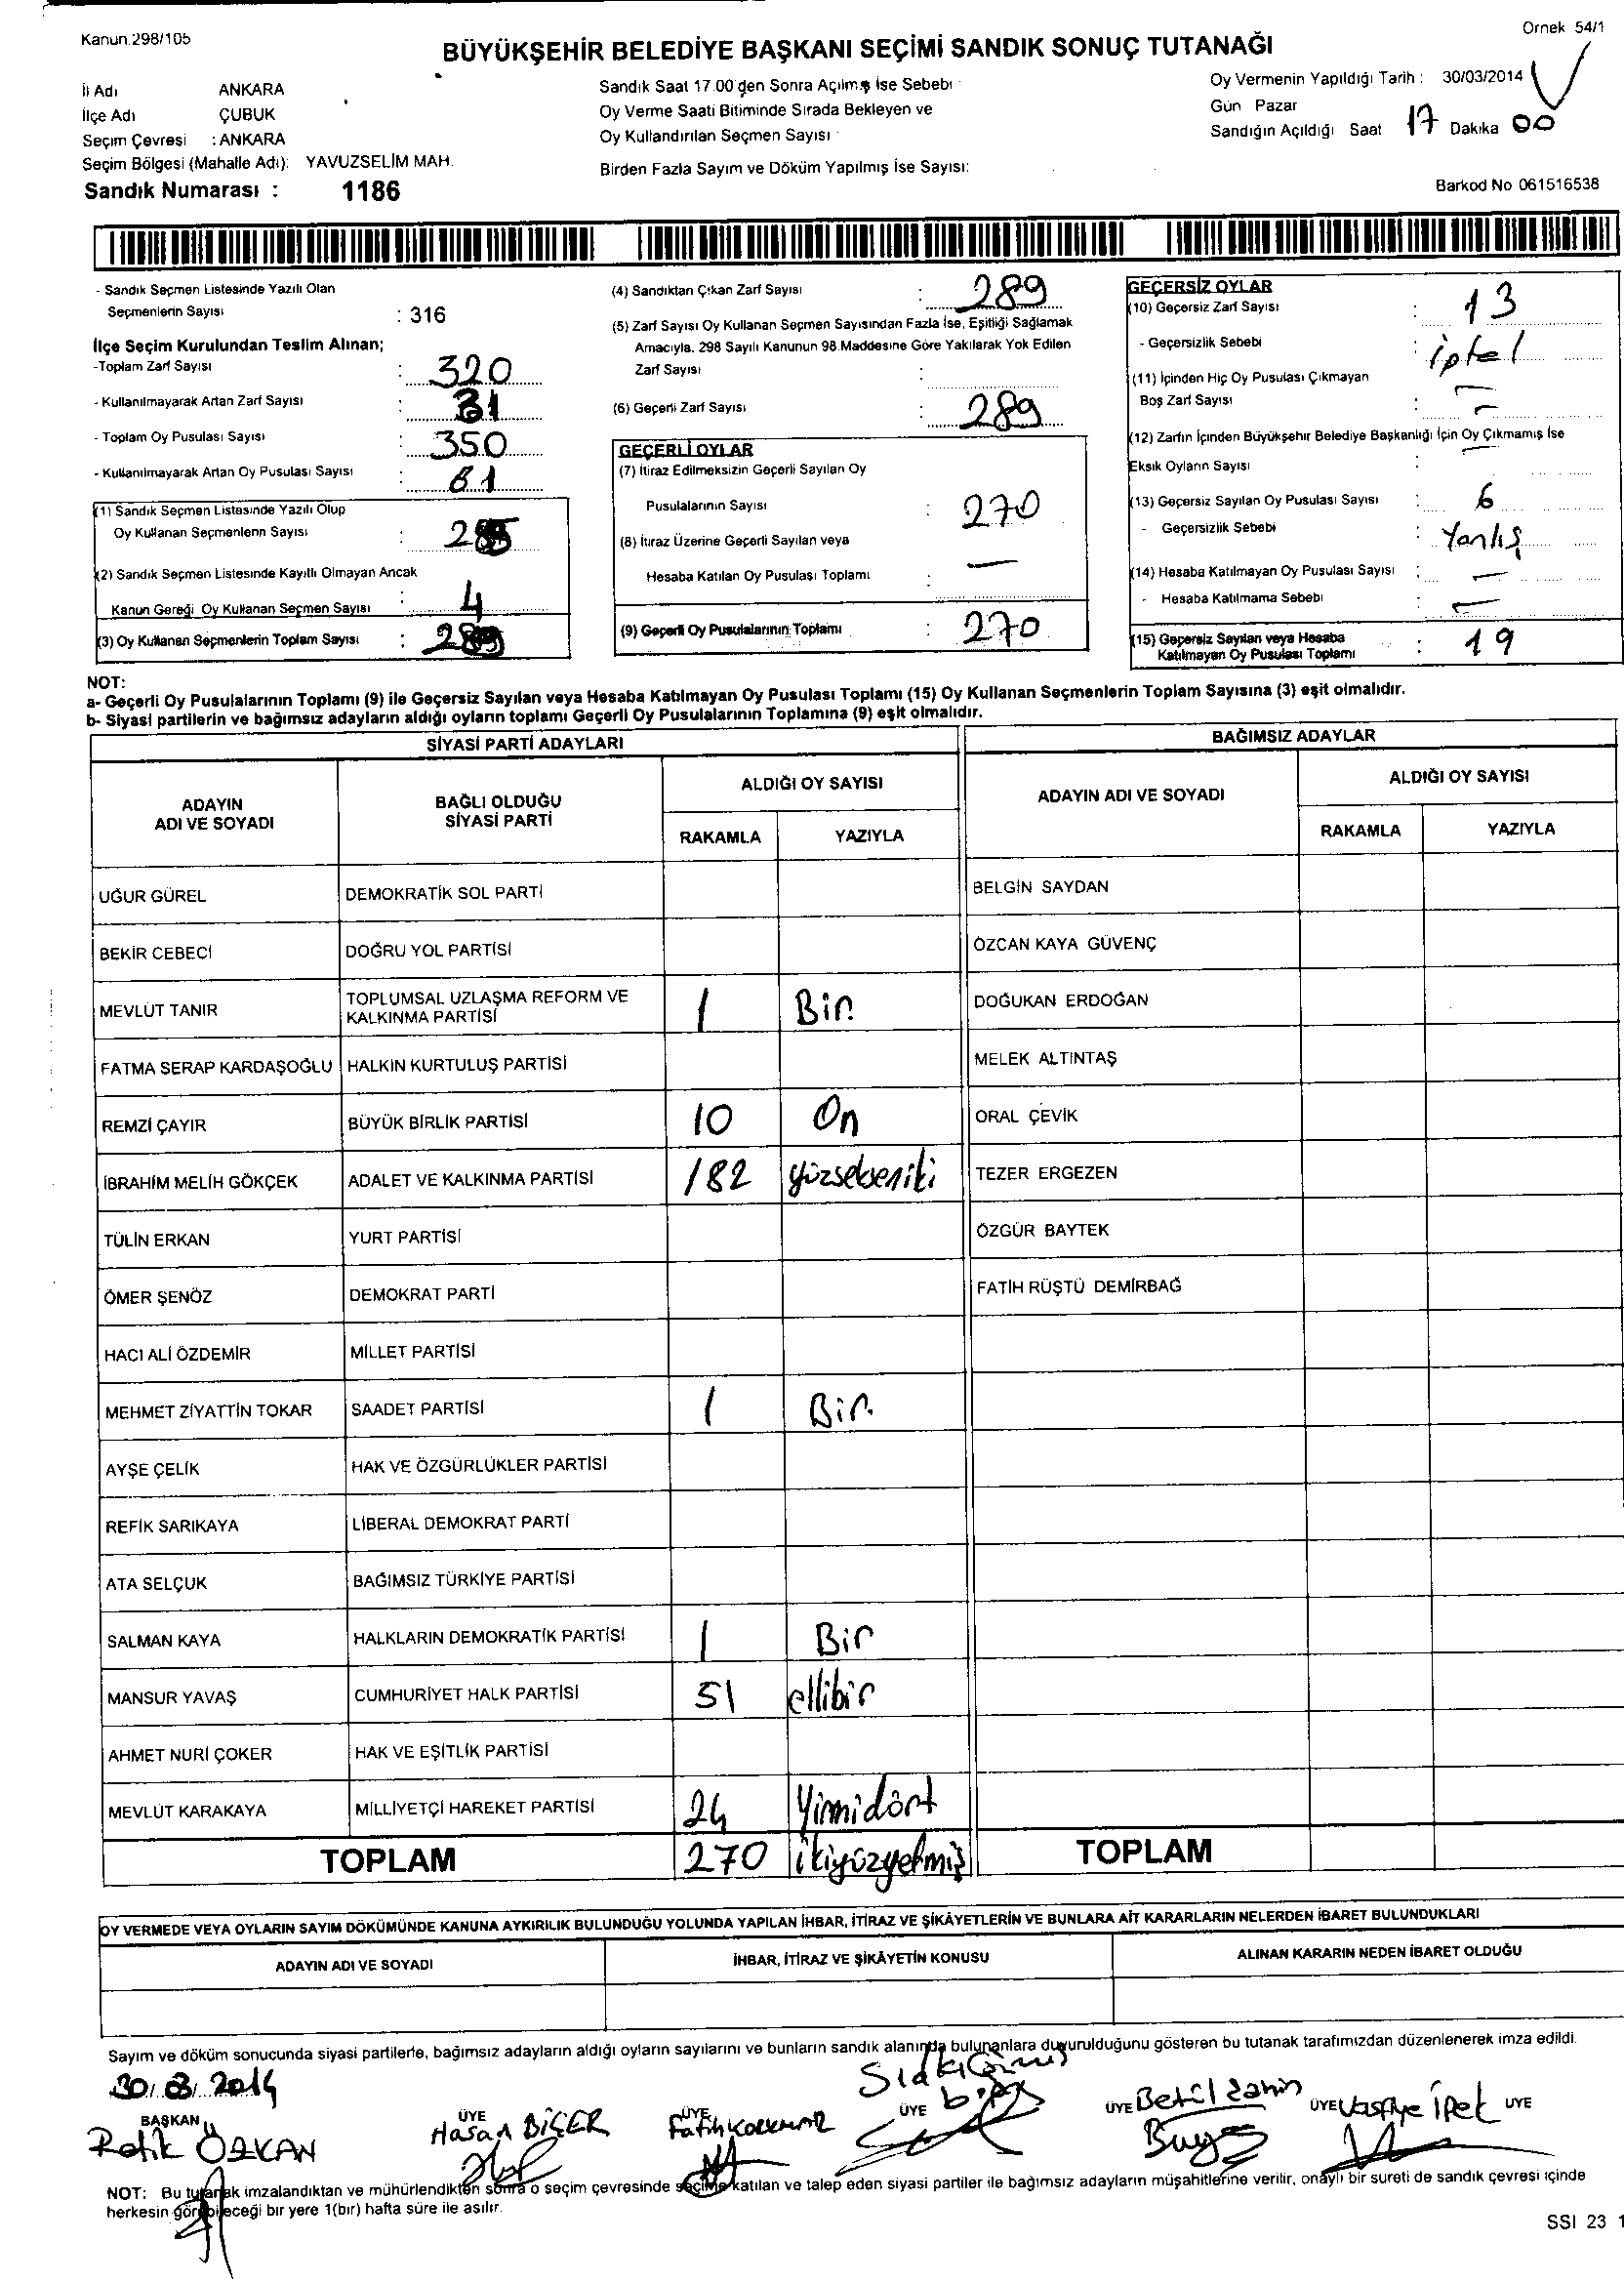 Kanun.298/105
Örnek 54/1
BÜYÜKŞEHİR BELEDİYE BAŞKANI SEÇİMİ SANDIK SONUÇ TUTANAĞI
İl Adı ANKARA
İlçe Adı ÇUBUK
Seçim Çevresi : ANKARA
Seçim Bölgesi (Mahalle Adı): YAVUZSELİM MAH.
Sandık Numarası : 1186
Sandık Saat 17.00'den Sonra Açılmış İse Sebebi
Oy Verme Saati Bitiminde Sırada Bekleyen ve
Oy Kullandırılan Seçmen Sayısı :
Birden Fazla Sayım ve Döküm Yapılmış İse Sayısı:
Oy Vermenin Yapıldığı Tarih : 30/03/2014
Gün Pazar
Sandığın Açıldığı Saat 17 Dakika 00
Barkod No 061516538
- Sandık Seçmen Listesinde Yazılı Olan
Seçmenlerin Sayısı : 316
İlçe Seçim Kurulundan Teslim Alınan;
-Toplam Zarf Sayısı : 320
- Kullanılmayarak Artan Zarf Sayısı : 31
- Toplam Oy Pusulası Sayısı : 350
- Kullanılmayarak Artan Oy Pusulası Sayısı : 61
(1) Sandık Seçmen Listesinde Yazılı Olup
Oy Kullanan Seçmenlerin Sayısı : 285
(2) Sandık Seçmen Listesinde Kayıtlı Olmayan Ancak
Kanun Gereği Oy Kullanan Seçmen Sayısı : 4
(3) Oy Kullanan Seçmenlerin Toplam Sayısı : 289
(4) Sandıktan Çıkan Zarf Sayısı : 289
(5) Zarf Sayısı Oy Kullanan Seçmen Sayısından Fazla İse, Eşitliği Sağlamak
Amacıyla, 298 Sayılı Kanunun 98.Maddesine Göre Yakılarak Yok Edilen
Zarf Sayısı :
(6) Geçerli Zarf Sayısı : 289
GEÇERLİ OYLAR
(7) İtiraz Edilmeksizin Geçerli Sayılan Oy
Pusulalarının Sayısı : 270
(8) İtiraz Üzerine Geçerli Sayılan veya
Hesaba Katılan Oy Pusulası Toplamı : —
(9) Geçerli Oy Pusulalarının Toplamı : 270
GEÇERSİZ OYLAR
(10) Geçersiz Zarf Sayısı : 13
- Geçersizlik Sebebi : iptal
(11) İçinden Hiç Oy Pusulası Çıkmayan
Boş Zarf Sayısı : —
(12) Zarfın İçinden Büyükşehir Belediye Başkanlığı İçin Oy Çıkmamış İse
Eksik Oyların Sayısı : —
(13) Geçersiz Sayılan Oy Pusulası Sayısı : 6
- Geçersizlik Sebebi : Yanlış
(14) Hesaba Katılmayan Oy Pusulası Sayısı : —
- Hesaba Katılmama Sebebi : —
(15) Geçersiz Sayılan veya Hesaba
Katılmayan Oy Pusulası Toplamı : 19
NOT:
a- Geçerli Oy Pusulalarının Toplamı (9) ile Geçersiz Sayılan veya Hesaba Katılmayan Oy Pusulası Toplamı (15) Oy Kullanan Seçmenlerin Toplam Sayısına (3) eşit olmalıdır.
b- Siyasi partilerin ve bağımsız adayların aldığı oyların toplamı Geçerli Oy Pusulalarının Toplamına (9) eşit olmalıdır.
SİYASİ PARTİ ADAYLARI
BAĞIMSIZ ADAYLAR
ADAYIN ADI VE SOYADI
BAĞLI OLDUĞU SİYASİ PARTİ
ALDIĞI OY SAYISI
RAKAMLA YAZIYLA
ADAYIN ADI VE SOYADI
ALDIĞI OY SAYISI
RAKAMLA YAZIYLA
UĞUR GÜREL DEMOKRATİK SOL PARTİ BELGİN SAYDAN
BEKİR CEBECİ DOĞRU YOL PARTİSİ ÖZCAN KAYA GÜVENÇ
MEVLÜT TANIR TOPLUMSAL UZLAŞMA REFORM VE KALKINMA PARTİSİ 1 Bir. DOĞUKAN ERDOĞAN
FATMA SERAP KARDAŞOĞLU HALKIN KURTULUŞ PARTİSİ MELEK ALTINTAŞ
REMZİ ÇAYIR BÜYÜK BİRLİK PARTİSİ 10 On ORAL ÇEVİK
İBRAHİM MELİH GÖKÇEK ADALET VE KALKINMA PARTİSİ 182 yüzsekseniki TEZER ERGEZEN
TÜLİN ERKAN YURT PARTİSİ ÖZGÜR BAYTEK
ÖMER ŞENÖZ DEMOKRAT PARTİ FATİH RÜŞTÜ DEMİRBAĞ
HACI ALİ ÖZDEMİR MİLLET PARTİSİ
MEHMET ZİYATTİN TOKAR SAADET PARTİSİ 1 Bir.
AYŞE ÇELİK HAK VE ÖZGÜRLÜKLER PARTİSİ
REFİK SARIKAYA LİBERAL DEMOKRAT PARTİ
ATA SELÇUK BAĞIMSIZ TÜRKİYE PARTİSİ
SALMAN KAYA HALKLARIN DEMOKRATİK PARTİSİ 1 Bir
MANSUR YAVAŞ CUMHURİYET HALK PARTİSİ 51 ellibir
AHMET NURİ ÇOKER HAK VE EŞİTLİK PARTİSİ
MEVLÜT KARAKAYA MİLLİYETÇİ HAREKET PARTİSİ 24 Yirmidört
TOPLAM 270 ikiyüzyetmiş TOPLAM
OY VERMEDE VEYA OYLARIN SAYIM DÖKÜMÜNDE KANUNA AYKIRILIK BULUNDUĞU YOLUNDA YAPILAN İHBAR, İTİRAZ VE ŞİKÂYETLERİN VE BUNLARA AİT KARARLARIN NELERDEN İBARET BULUNDUKLARI
ADAYIN ADI VE SOYADI İHBAR, İTİRAZ VE ŞİKÂYETİN KONUSU ALINAN KARARIN NEDEN İBARET OLDUĞU
Sayım ve döküm sonucunda siyasi partilerle, bağımsız adayların aldığı oyların sayılarını ve bunların sandık alanında bulunanlara duyurulduğunu gösteren bu tutanak tarafımızdan düzenlenerek imza edildi.
30/03/2014
BAŞKAN ÜYE ÜYE ÜYE ÜYE ÜYE ÜYE
Refik ÖZKAN Hasan BİÇER Fatih KORKMAZ Betül Şahin Vasfiye İpek
NOT: Bu tutanak imzalandıktan ve mühürlendikten sonra o seçim çevresinde seçime katılan ve talep eden siyasi partiler ile bağımsız adayların müşahitlerine verilir, onaylı bir sureti de sandık çevresi içinde
herkesin görebileceği bir yere 1(bir) hafta süre ile asılır.
SSI 23 1